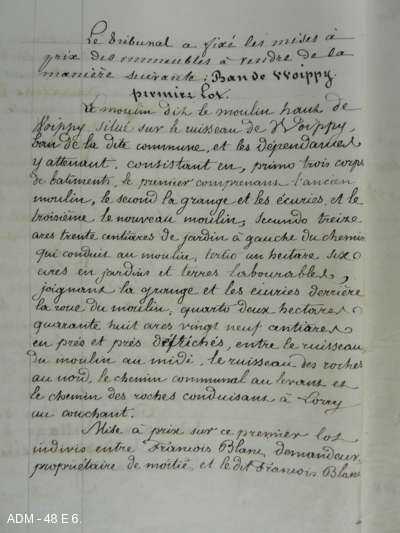 Le tribunal a fixé les mises à
prix des immeubles à vendre de la
manière suivante : Ban de Woippy.
premier lot.
Le moulin dit le moulin haut de
Woippy situé sur le ruisseau de Woippy,
ban de la dite commune, et les dépendances
y attenant, consistant en, primo trois corps
de batiments, le premier comprenant l'ancien
moulin, le second la grange et les écuries, et le
troisième le nouveau moulin, secundo treize
ares trente centiares de jardin à gauche du chemin
qui conduit au moulin, tertio un hectare six
ares en jardins et terres labourables,
joignant la grange et les écuries derrière
la roue du moulin, quarto deux hectares
quarante huit ares vingt neuf centiares
en prés et prés défrichés, entre le ruisseau
du moulin au midi, le ruisseau des roches
au nord, le chemin communal au levant et
le chemin des roches conduisant à Lorry
au couchant.
Mise à prix sur ce premier lot
indivis entre François Blanc, demandeur,
propriétaire de moitié, et le dit François Blanc
ADM - 48 E 6.